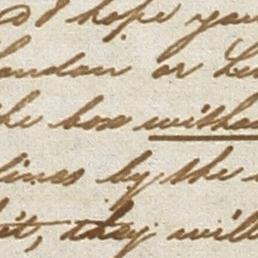 I hope you
London or
the box witho
lines by the
it, they will